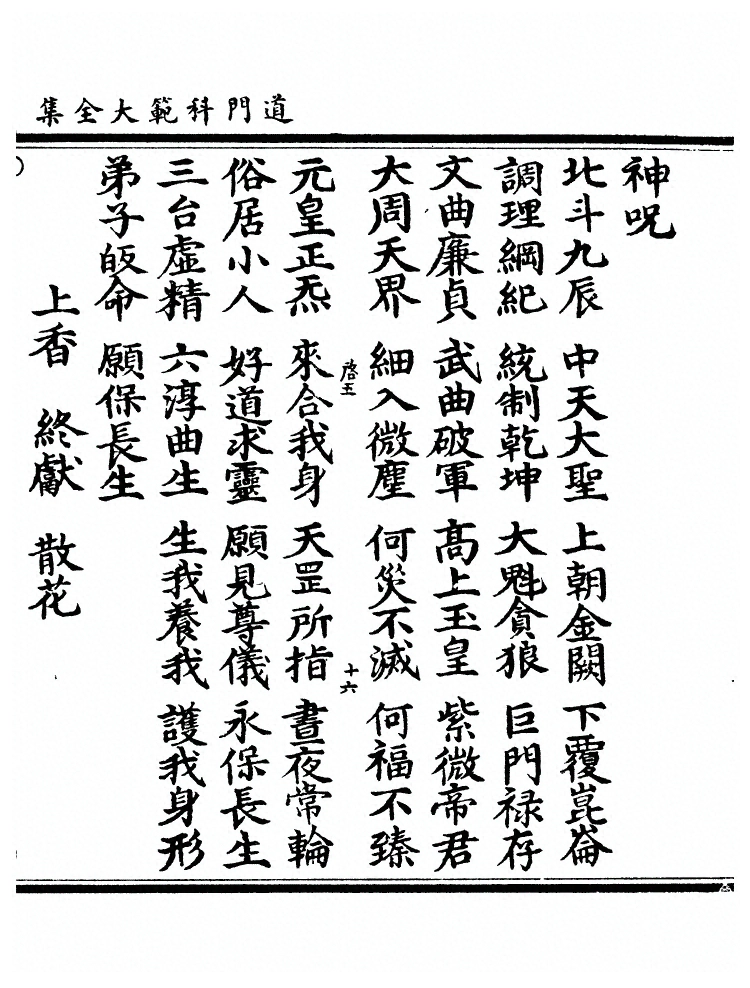 道門科範大全集
神呪
北斗九辰 中天大聖 上朝金闕 下覆崑崙
調理綱紀 統制乾坤 大魁貪狼 巨門禄存
文曲廉貞 武曲破軍 高上玉皇 紫微帝君
大周天界 細入微塵 何災不滅 何福不臻
啓五 十六
元皇正炁 來合我身 天罡所指 晝夜常輪
俗居小人 好道求靈 願見尊儀 永保長生
三台虛精 六淳曲生 生我養我 護我身形
弟子皈命 願保長生
上香 終獻 散花